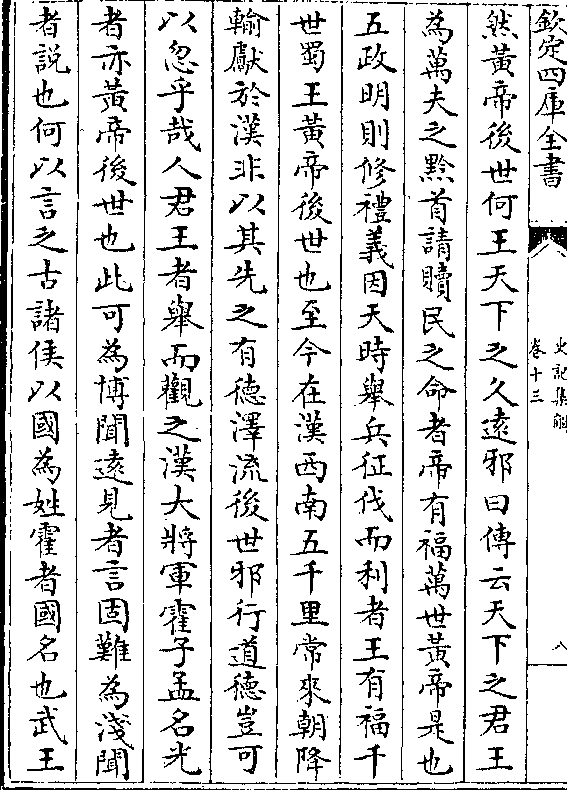 欽定四庫全書
史記集解
卷十三
八
然黃帝後世何王天下之久遠邪曰傳云天下之君王
為萬夫之黔首請贖民之命者帝有福萬世黃帝是也
五政明則修禮義因天時舉兵征伐而利者王有福千
世蜀王黃帝後世也至今在漢西南五千里常來朝降
輸獻於漢非以其先之有德澤流後世邪行道德豈可
以忽乎哉人君王者舉而觀之漢大將軍霍子孟名光
者亦黃帝後世也此可為博聞遠見者言固難為淺聞
者說也何以言之古諸侯以國為姓霍者國名也武王